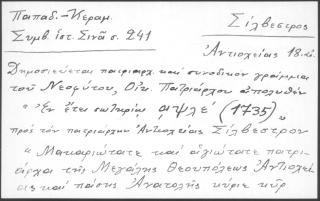 Παπαδ.-Κεραμ.
Συμβ. ἱστ. Σινᾶ σ. 241
Σίλβεστρος
Ἀντιοχείας 18. αἰ.
Δημοσιεύεται πατριαρχ. καὶ συνοδικὸν γράμμα
τοῦ Νεοφύτου, Οἰκ. Πατριάρχου ἀπολυθὲν
"Ἐν ἔτει σωτηρίῳ αψλε΄ (1735)"
πρὸς τὸν πατριάρχην Ἀντιοχείας Σίλβεστρον
"Μακαριώτατε καὶ ἁγιώτατε πατρι-
άρχα τῆς Μεγάλης Θεουπόλεως Ἀντιοχεί-
ας καὶ πάσης Ἀνατολῆς κύριε κὺρ